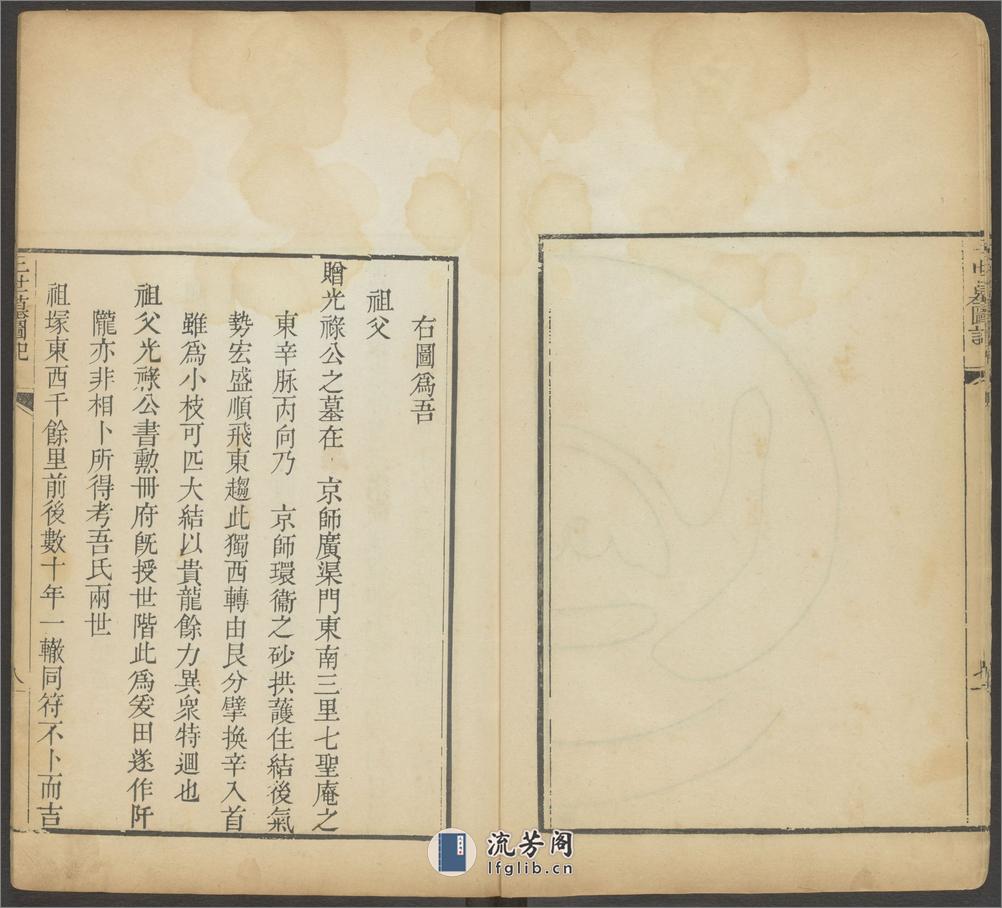 右圖爲吾
祖父
贈光祿公之墓在 京師廣渠門東南三里七聖庵之
東辛脉丙向乃 京師環衞之砂拱護住結後氣
勢宏盛順飛東趨此獨西轉由艮分擘換辛入首
雖爲小枝可匹大結以貴龍餘力異衆特迴也
祖父光祿公書勲冊府旣授世階此爲爰田遂作阡
隴亦非相卜所得考吾氏兩世
祖塚東西千餘里前後數十年一轍同符不卜而吉
世墓圖記
八
流芳阁
lfglib.cn